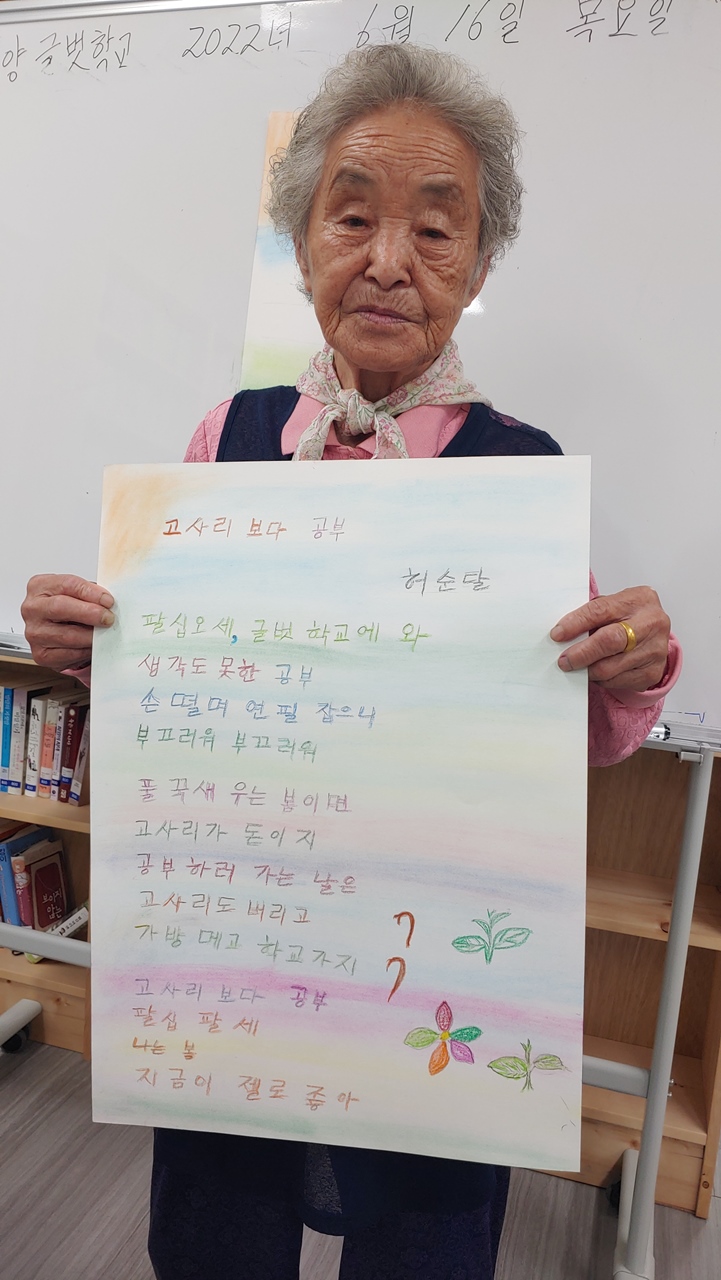 양 글벗학교 2022년 6월 16일 목요일
고사리 보다 공부
허순달
팔십오세, 글벗 학교에 와
생각도 못한 공부
손 떨며 연필 잡으니
부끄러워 부끄러워
풀꾹새 우는 봄이면
고사리가 돈이지
공부하러 가는 날은
고사리도 버리고
가방 메고 학교가지
고사리 보다 공부
팔십 팔세
나는 봄
지금이 젤로 좋아